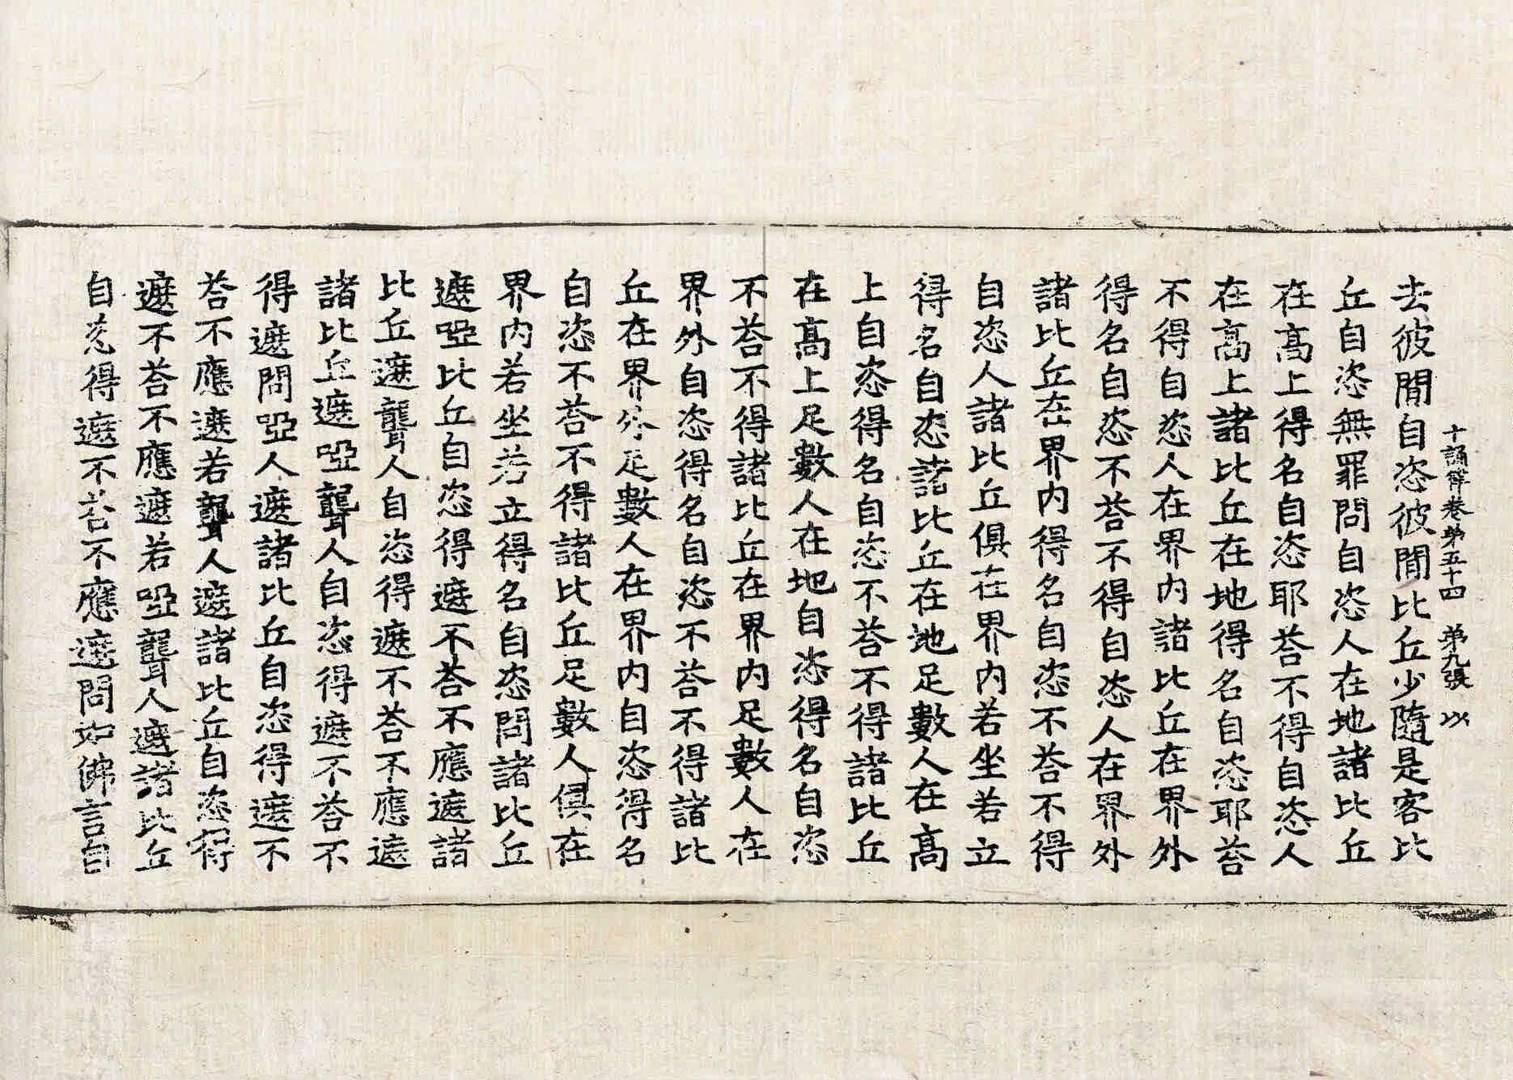 十誦律卷苐五十四 苐九張 以
去彼閒自恣彼閒比丘少隨是客比
丘自恣無罪問自恣人在地諸比丘
在髙上得名自恣耶荅不得自恣人
在髙上諸比丘在地得名自恣耶荅
不得自恣人在界内諸比丘在界外
得名自恣不荅不得自恣人在界外
諸比丘在界内得名自恣不荅不得
自恣人諸比丘俱在界内若坐若立
得名自恣諸比丘在地足數人在髙
上自恣得名自恣不荅不得諸比丘
在髙上足數人在地自恣得名自恣
不荅不得諸比丘在界内足數人在
界外自恣得名自恣不荅不得諸比
丘在界外足數人在界内自恣得名
自恣不荅不得諸比丘足數人俱在
界内若坐若立得名自恣問諸比丘
遮啞比丘自恣得遮不荅不應遮諸
比丘遮聾人自恣得遮不荅不應遮
諸比丘遮啞聾人自恣得遮不荅不
得遮問啞人遮諸比丘自恣得遮不
荅不應遮若聾人遮諸比丘自恣得
遮不荅不應遮若啞聾人遮諸比丘
自恣得遮不荅不應遮問如佛言自